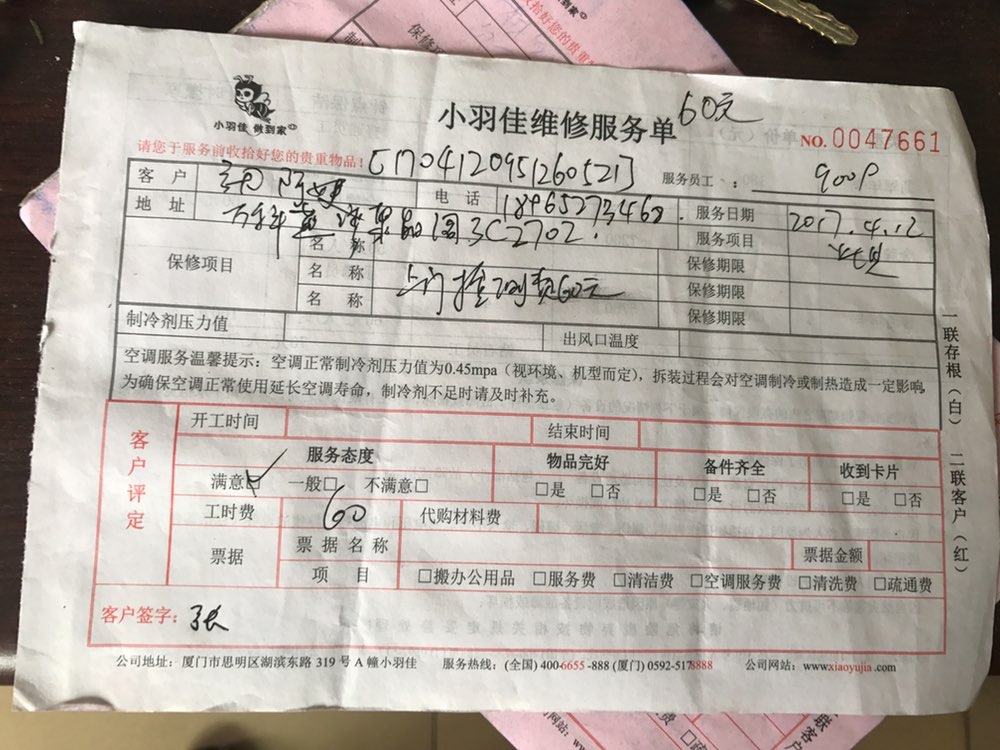 小羽佳 做到家
小羽佳维修服务单
60元
NO. 0047661
请您于服务前收拾好您的贵重物品!
[170412095126052]
服务员工：
客 户
电 话
服务日期 2017.4.12
地 址 3C2702
服务项目
保修项目
名 称
保修期限
名 称 上门检测费60元
保修期限
名 称
保修期限
制冷剂压力值
出风口温度
空调服务温馨提示：空调正常制冷剂压力值为0.45mpa（视环境、机型而定），拆装过程会对空调制冷或制热造成一定影响,
为确保空调正常使用延长空调寿命，制冷剂不足时请及时补充。
一联存根（白） 二联客户（红）
客户评定
开工时间
结束时间
服务态度 物品完好 备件齐全 收到卡片
满意□ 一般□ 不满意□ □是 □否 □是 □否 □是 □否
工时费 60 代购材料费
票据
票据名称
票据金额
项 目 □搬办公用品 □服务费 □清洁费 □空调服务费 □清洗费 □疏通费
客户签字：张
公司地址：厦门市思明区湖滨东路 319 号 A 幢小羽佳 服务热线：(全国) 400-6655-888 (厦门) 0592-5178888 公司网站：www.xiaoyujia.com